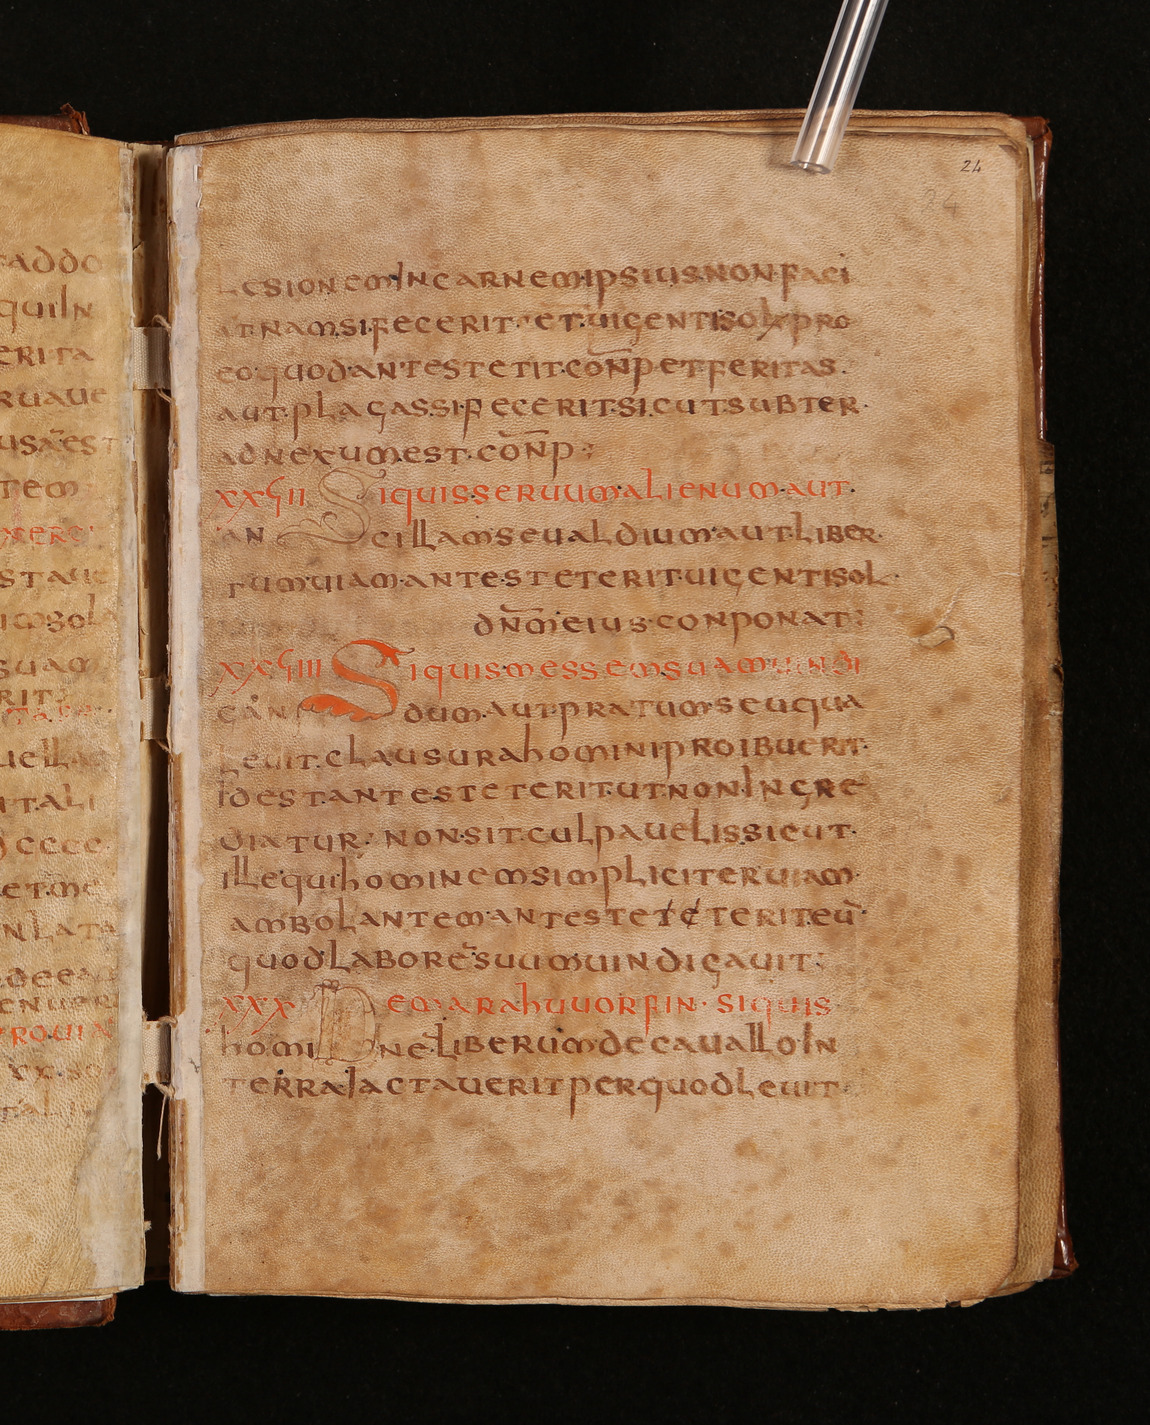 24
24
LESIONEM INCARNEM IPSIUS NON FACI
AT NAM SI FECERIT ET UIGENTI SOL XX PRO
EO QUOD ANTESTETIT CON̄P ET FERITAS
AUT PLAGAS SI FECERIT SICUT SUBTER
ADNEXUM EST CON̄P
XXVII SI QUIS SERUUM ALIENUM AUT
AN CILLAM SEU ALDIUM AUT LIBER
TUM UIAM ANTESTETERIT UIGENTI SOL
DN̄M EIUS CONPONAT
XXVIIII SI QUIS MESSEM SUAM UINDI
CAN DUM AUT PRATUM SEU QUA
LEUIT CLAUSURA HOMINI PROIBUERIT
ID EST ANTESTETERIT UT NON INGRE
DIATUR NON SIT CULPAUELIS SICUT
ILLE QUI HOMINEM SIMPLICITER UIAM
AMBOLANTEM ANTESTETETERIT EU
QUOD LABORE SUUM UINDIGAUIT
XXX DE MARAHUUORFIN SI QUIS
HOMI NE LIBERUM DE CAUALLO IN
TERRA IACTAUERIT PER QUODLEUIT
ADDO
QUI IN
ERITA
RUAUE
USA EST
TEM